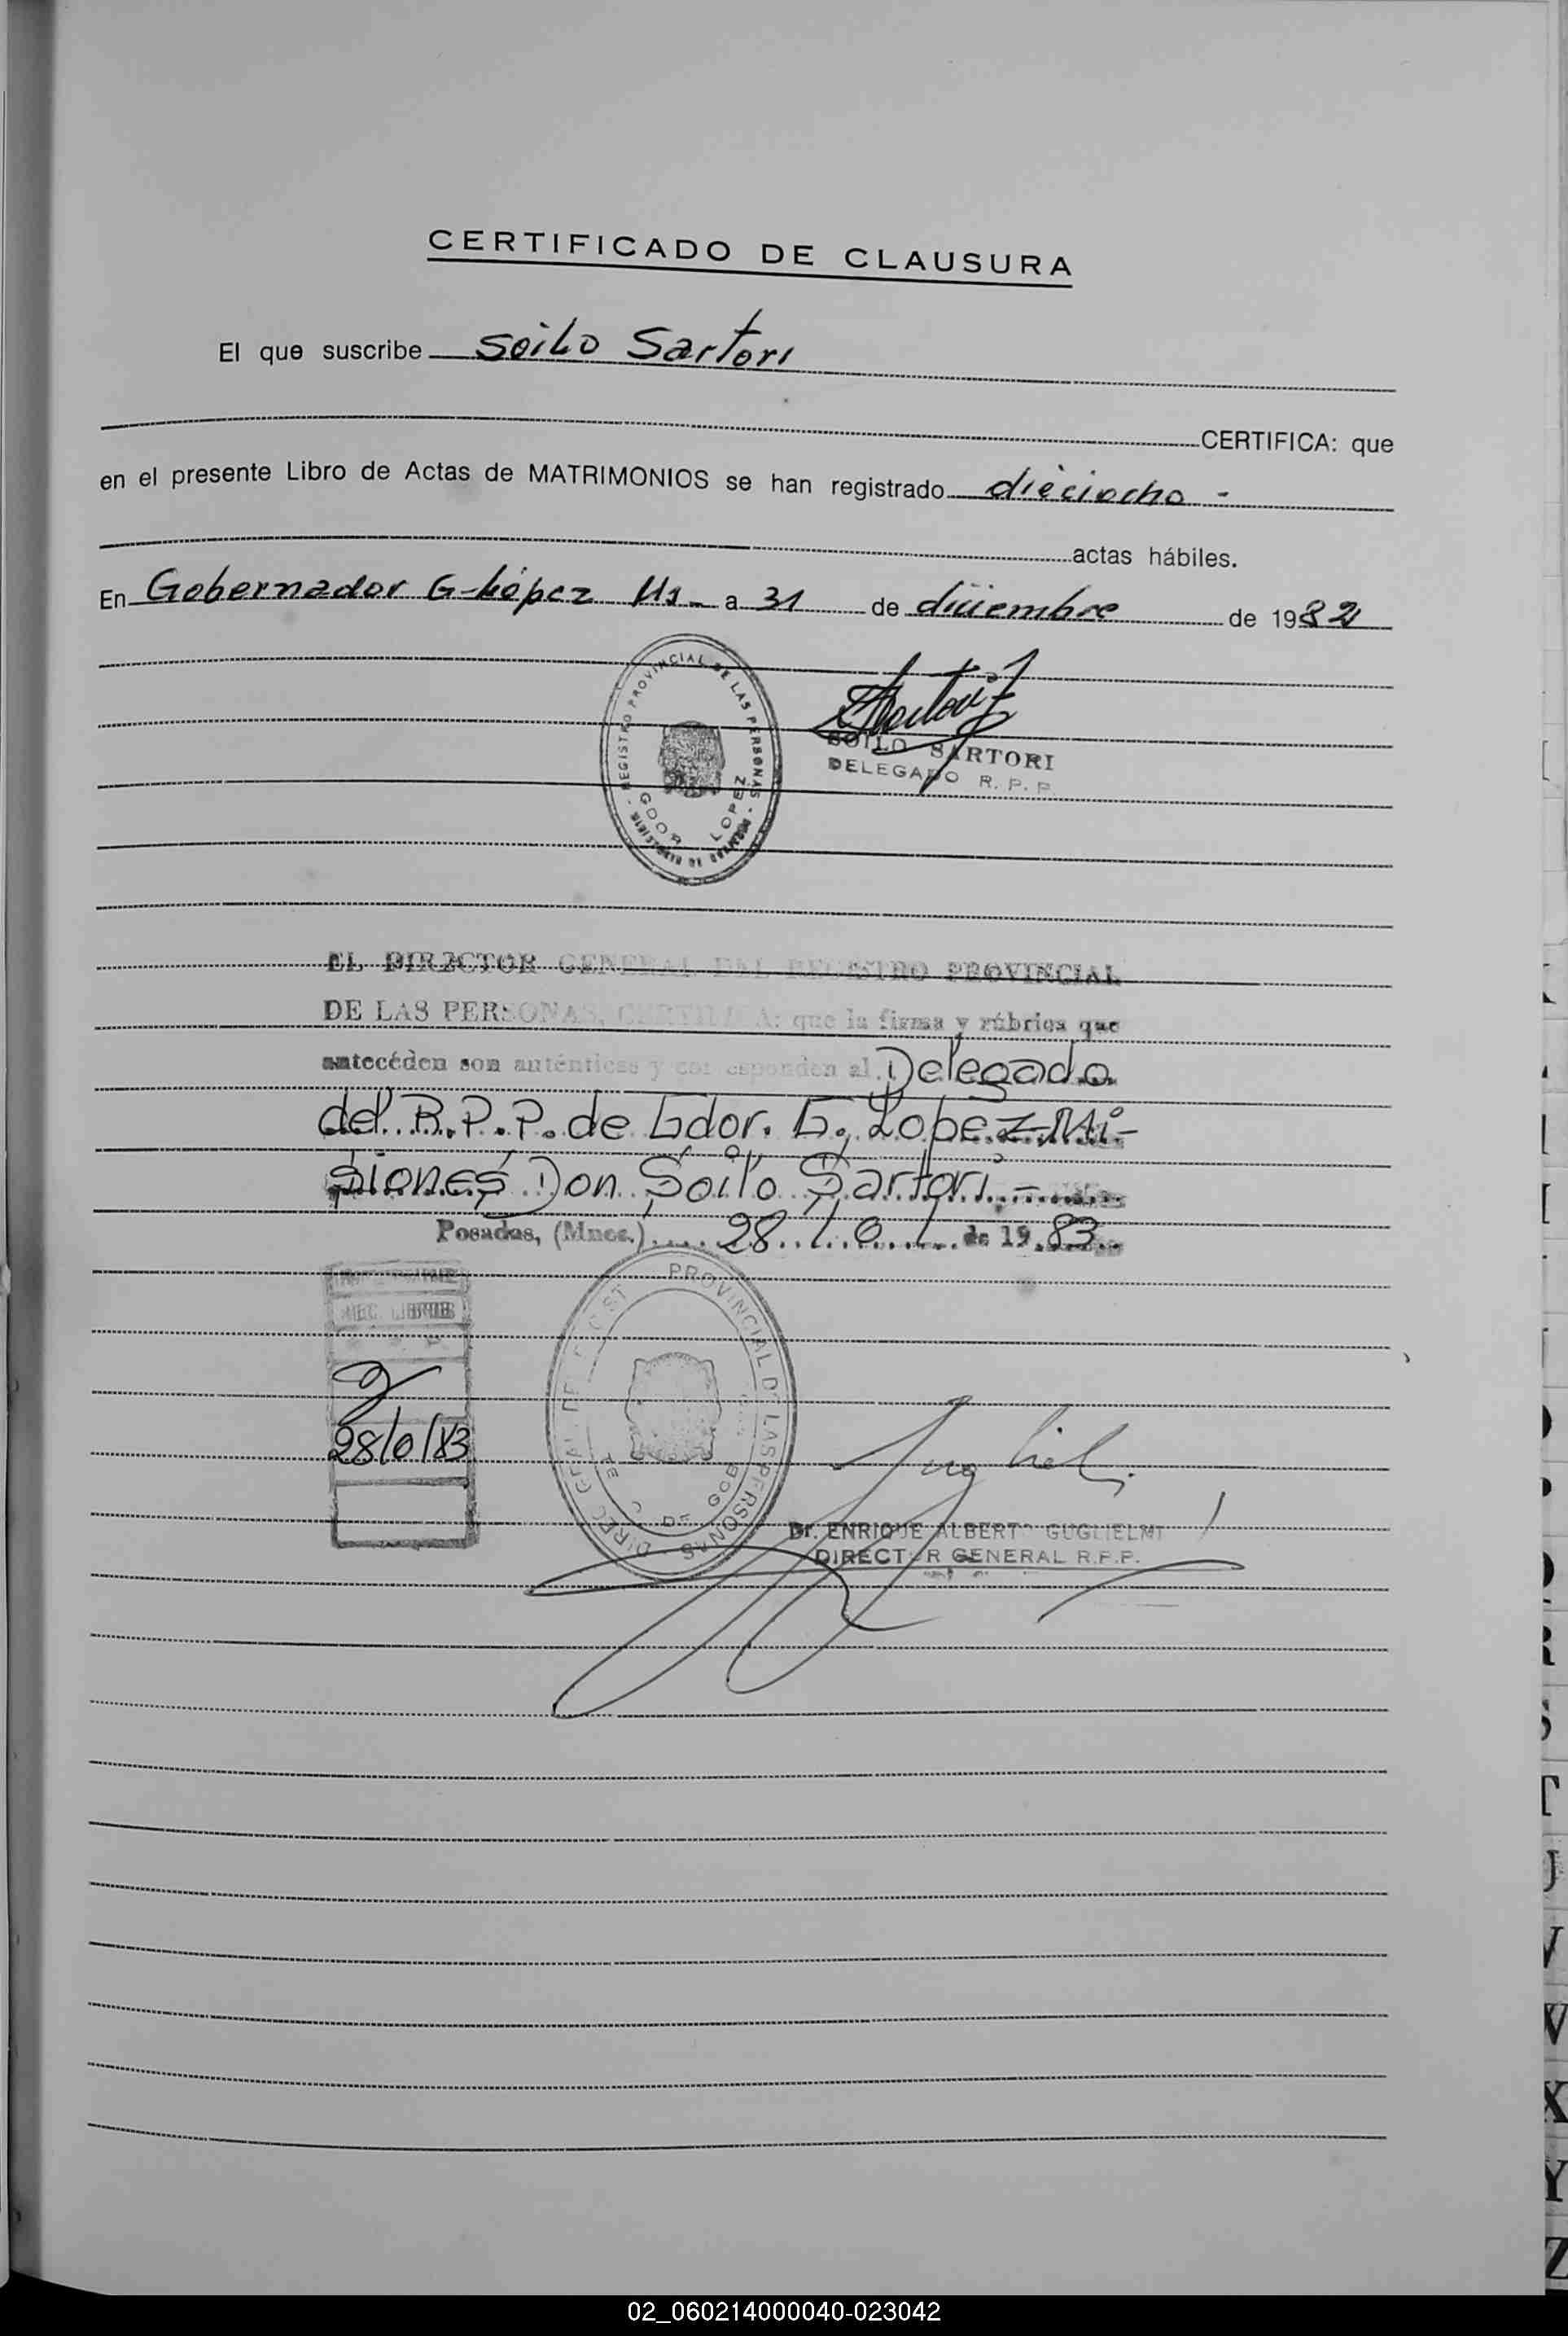 CERTIFICADO DE CLAUSURA
El que suscribe Soilo Sartori
CERTIFICA: que
en el presente Libro de Actas de MATRIMONIOS se han registrado dieciocho -
actas hábiles.
En Gobernador G-López Ms- a 31 de diciembre de 1982
REGISTRO PROVINCIAL DE LAS PERSONAS
GDOR LOPEZ
MINISTERIO DE GOBIERNO
SOILO SARTORI
DELEGADO R. P. P.
EL DIRECTOR GENERAL DEL REGISTRO PROVINCIAL
DE LAS PERSONAS, CERTIFICA: que la firma y rúbrica que
antecéden son auténticas y corresponden al Delegado
del R.P.P. de Gdor. G. Lopez-Mi-
siones Don Soilo Sartori.-
Posadas, (Mnes.) 28/0/ de 1983
PROVINCIAL DE LAS PERSONAS
28/0/83
Dr. ENRIQUE ALBERTO GUGLIELMI
DIRECTOR GENERAL R.P.P.
R
S
T
U
V
W
X
Y
Z
02_060214000040-023042